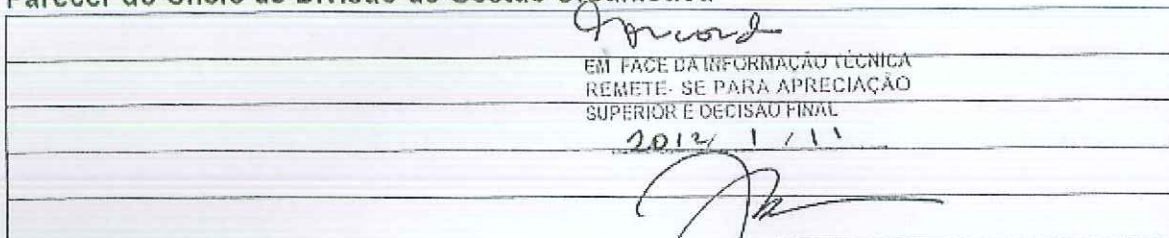 Parecer do Chefe de Divisão de Gestão Urbanística
EM FACE DA INFORMAÇÃO TÉCNICA
REMETE-SE PARA APRECIAÇÃO
SUPERIOR E DECISÃO FINAL
2012/ 1 / 11